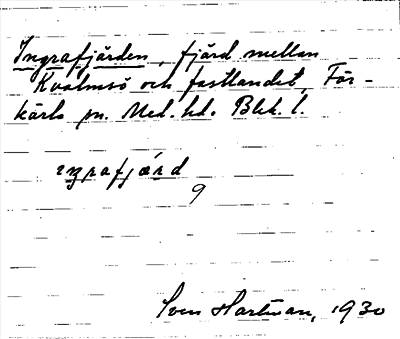 Ingrafjärden, fjärd mellan
Kvalmsö och fastlandet, För-
kärla sn. Med. hd. Blek. l.
ıŋrafjærd
9
Sven Hartman, 1930